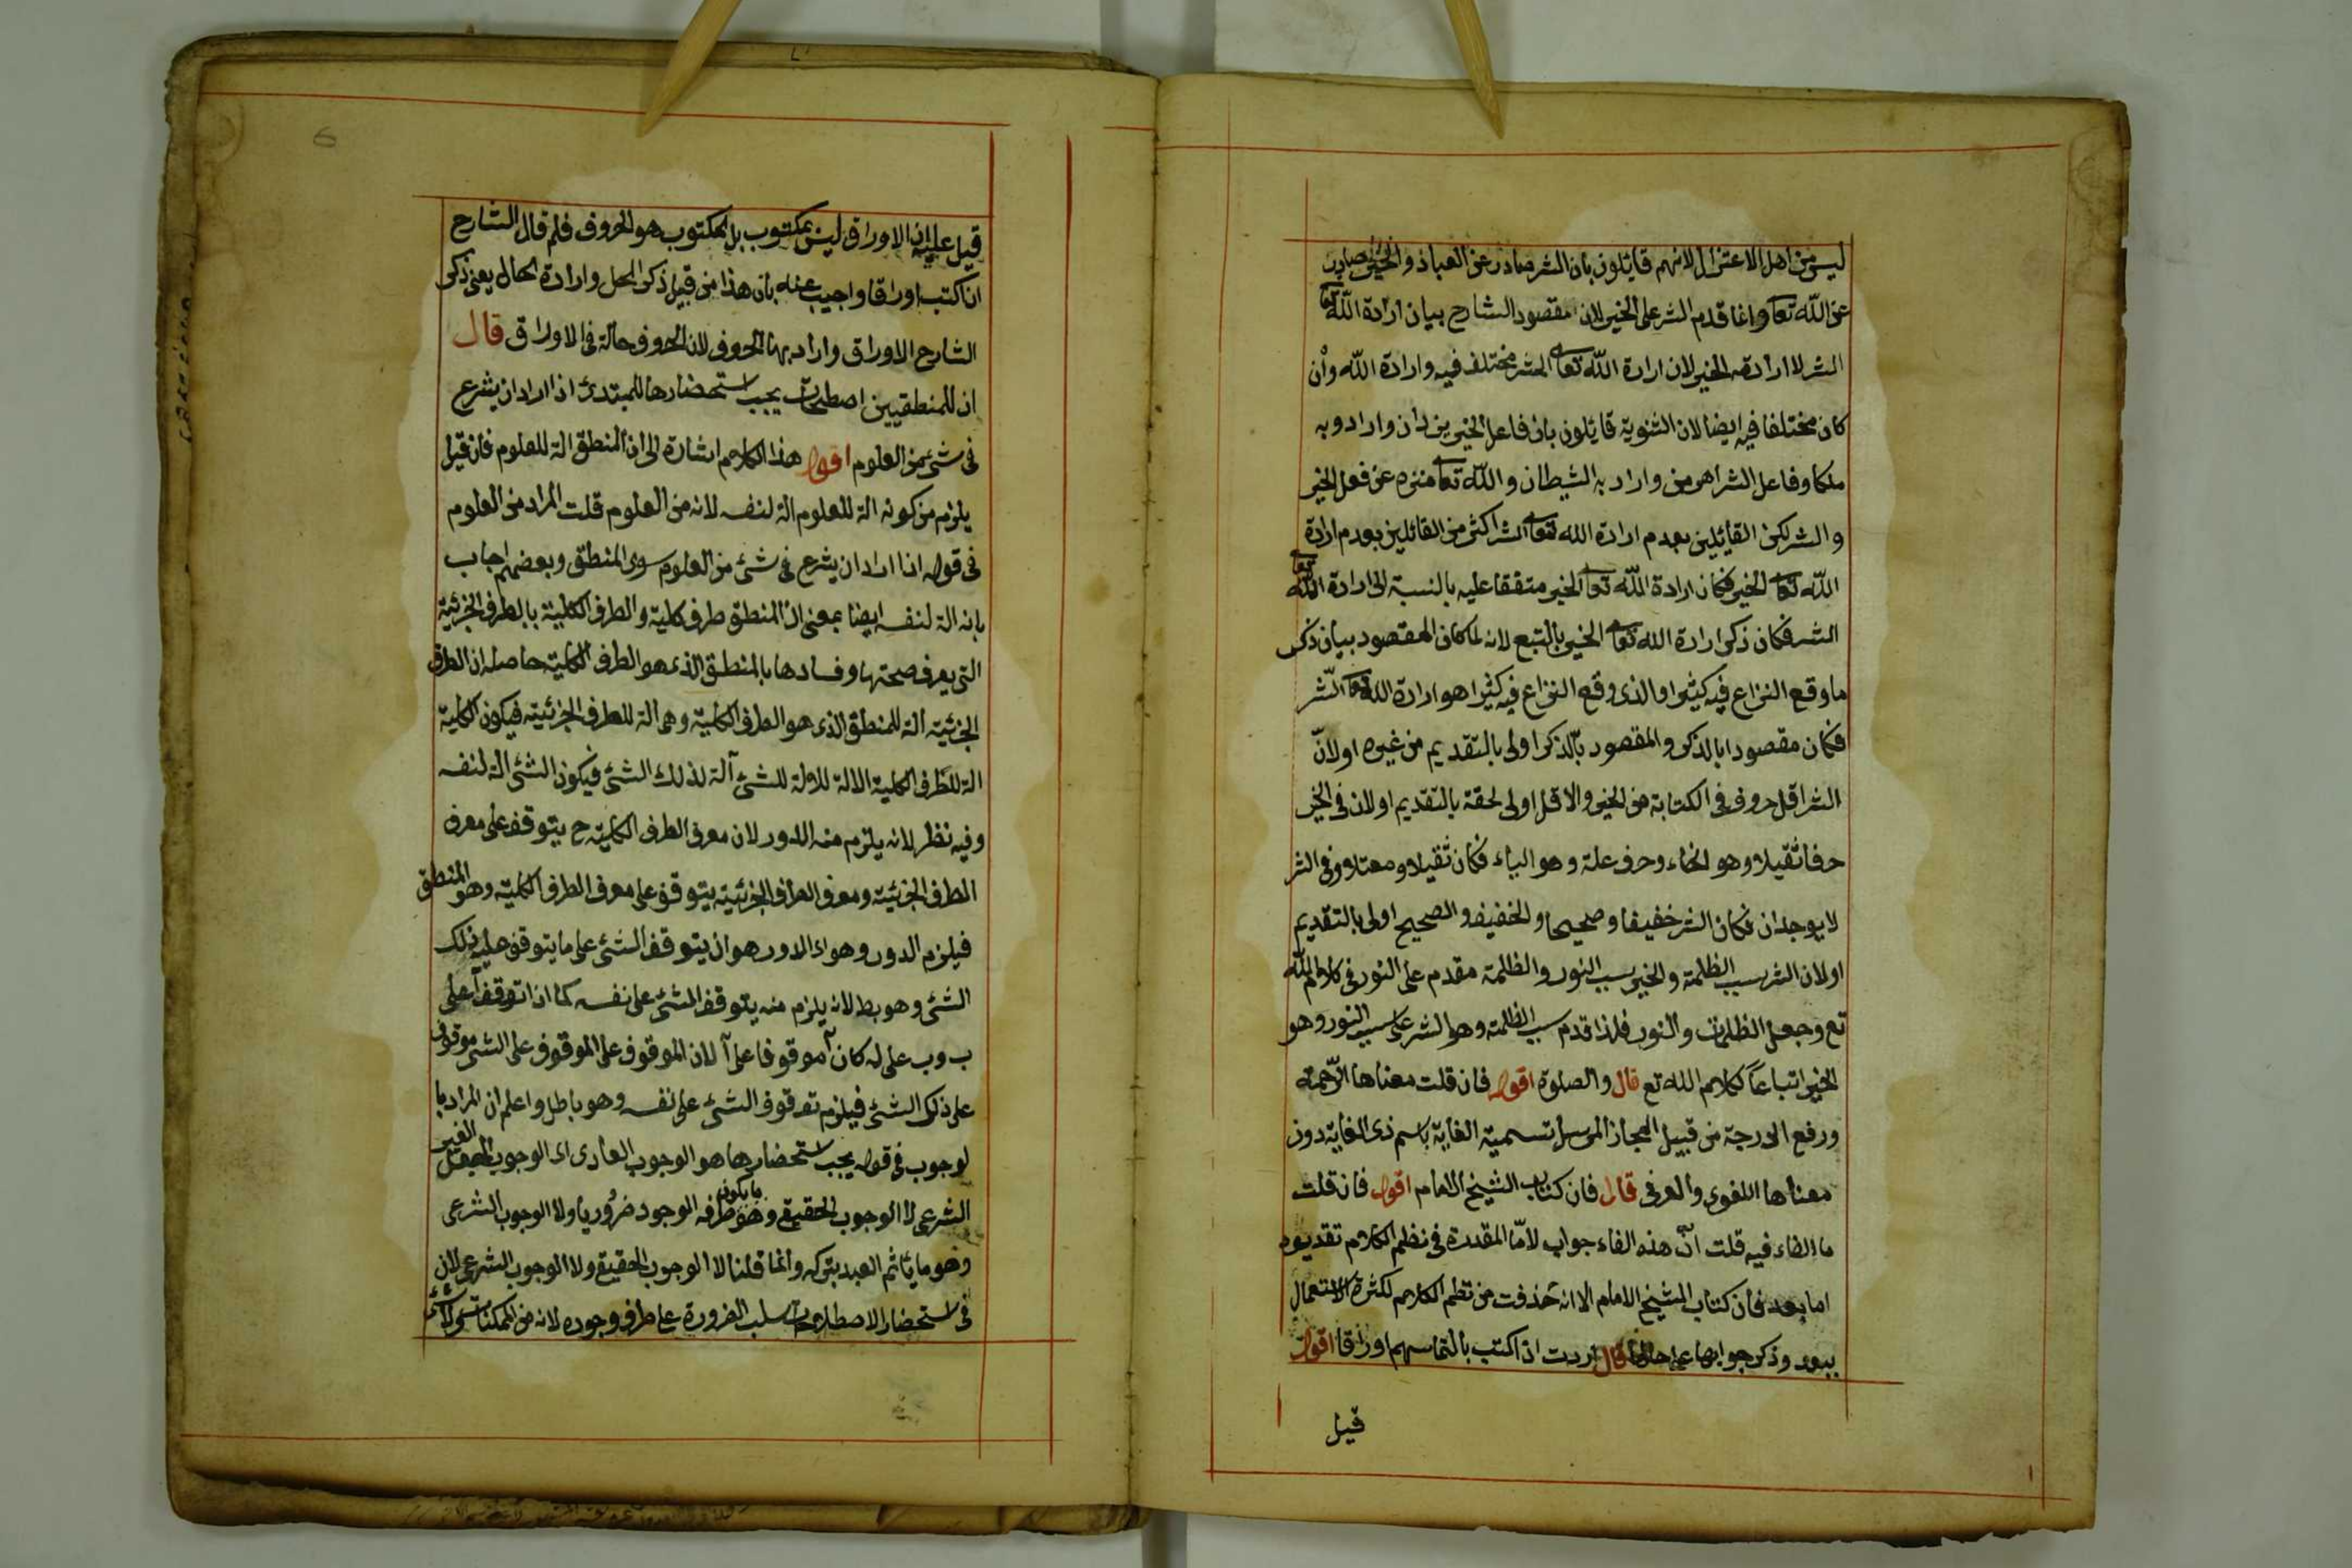 ليس من اهل الاعتزال لانهم قايلون بان الشر صادر عن العباد والخير صادر
عن الله تعا وانما قدم الشر على الخير لان مقصود الشارح بيان ارادة الله تعا
الشر لا ارادته الخير لان ارادة الله تعا الشر مختلف فيه وارادة الله وان
كان مختلفا فيه ايضا لان الثنوية قايلون بان فاعل الخير يزدان وارادو به
ملكا وفاعل الشر اهرمن واراد به الشيطان والله تعا منزه عن فعل الخير
والشر لكن القايلين بعدم ارادة الله تعا الشر اكثر من القائلين بعدم ارادة
الله تعا الخير فكان ارادة الله تعا الخير متفقا عليه بالنسبة الى ارادة الله تعا
الشر فكان ذكر ارادة الله تعا الخير بالتبع لانه لما كان المقصود بيان ذكر
ما وقع النزاع فيه كثيرا والذى وقع النزاع فيه كثيرا هو ارادة الله تعا الشر
فكان مقصودا بالذكر والمقصود بالذكر اولى بالتقديم من غيره اولان
الشر اقل حروف فى الكتابة من الخير والاقل اولى لحقة بالتقديم اولان فى الخير
حرفا ثقيلا وهو الخاء وحرف علة وهو الياء فكان ثقيلا ومعتلا وفى الشر
لا يوجدان فكان الشر خفيفا وصحيحا والخفيف والصحيح اولى بالتقديم
اولان الشر سبب الظلمة والخير سبب النور والظلمة مقدم على النور فى كلام الله
تع وجعل الظلمات والنور فلذا قدم سبب الظلمة وهو الشر على سبب النور وهو
الخير اتباعا لكلام الله تع قال والصلوة اقول فان قلت معناها الرحمة
ورفع الدرجة من قبيل المجاز المرسل تسمية الغاية باسم ذى الغاية دون
معناها اللغوى والعرفى قال فان كتاب الشيخ الامام اقول فان قلت
ما الفاء فيه قلت ان هذه الفاء جواب لاما المقدرة فى نظم الكلام تقديره
اما بعد فان كتاب الشيخ الامام الا انه حذفت من نظم الكلام لكثرة الاستعمال
وذكر جوابها على حالها قال اردت ان اكتب بالتماسهم اوراقا اقول
قيل
قيل عليه ان الاوراق ليس بمكتوب بل المكتوب هو الحروف فلم قال الشارح
ان اكتب اوراقا واجيب عنه بان هذا من قبيل ذكر المحل وارادة الحال يعنى ذكر
الشارح الاوراق واراد بها الحروف لان الحروف حالة فى الاوراق قال
ان للمنطقيين اصطلحات يجب استحضارها للمبتدئ اذا اراد ان يشرع
فى شئ من العلوم اقول هذا الكلام اشارة الى ان المنطق الة للعلوم فان قيل
يلزم من كونه الة للعلوم الة لنفسه لانه من العلوم قلت المراد من العلوم
فى قوله اذا اراد ان يشرع فى شئ من العلوم سوى المنطق وبعضهم اجاب
بانه الة لنفسه ايضا بمعنى ان المنطق طرف كلية والطرف الكلية بالطرف الجزئية
التى يعرف صحتها وفسادها بالمنطق الذى هو الطرف الكلية حاصله ان الطرف
الجزئية الة للمنطق الذى هو الطرف الكلية وهى الة للطرف الجزئية فيكون الكلية
الة للطرف الكلية الالة للالة للشئ آلة لذلك الشئ فيكون الشئ الة لنفسه
وفيه نظر لانه يلزم منه الدور لان معرفة الطرف الكلية ح يتوقف على معرف
الطرف الجزئية ومعرف الطرف الجزئية يتوقف على معرف الطرف الكلية وهو المنطق
فيلزم الدور وهو اى الدور هو ان يتوقف الشئ على ما يتوقف عليه ذلك
الشئ وهو بط لانه يلزم منه يتوقف الشئ على نفسه كما اذا توقف آ على
ب وب على له كان آ موقوفا على آ لان الموقوف على الموقوف على الشئ موقوف
على ذلك الشئ فيلزم توقوف الشئ على نفسه وهو باطل واعلم ان المراد با
لوجوب فى قوله يجب استحضارها هو الوجوب العادى اى الوجوب العقل الغير
الشرعى لا الوجوب الحقيقى وهو ما يكون طرفه الوجود ضروريا ولا الوجوب الشرعى
وهو ما يأثم العبد بتركه وانما قلنا لا الوجوب الحقيقى ولا الوجوب الشرعى لان
فى استحضار الاصطلاحات سلب الضرورة على طرف وجوده لانه من الممكنات